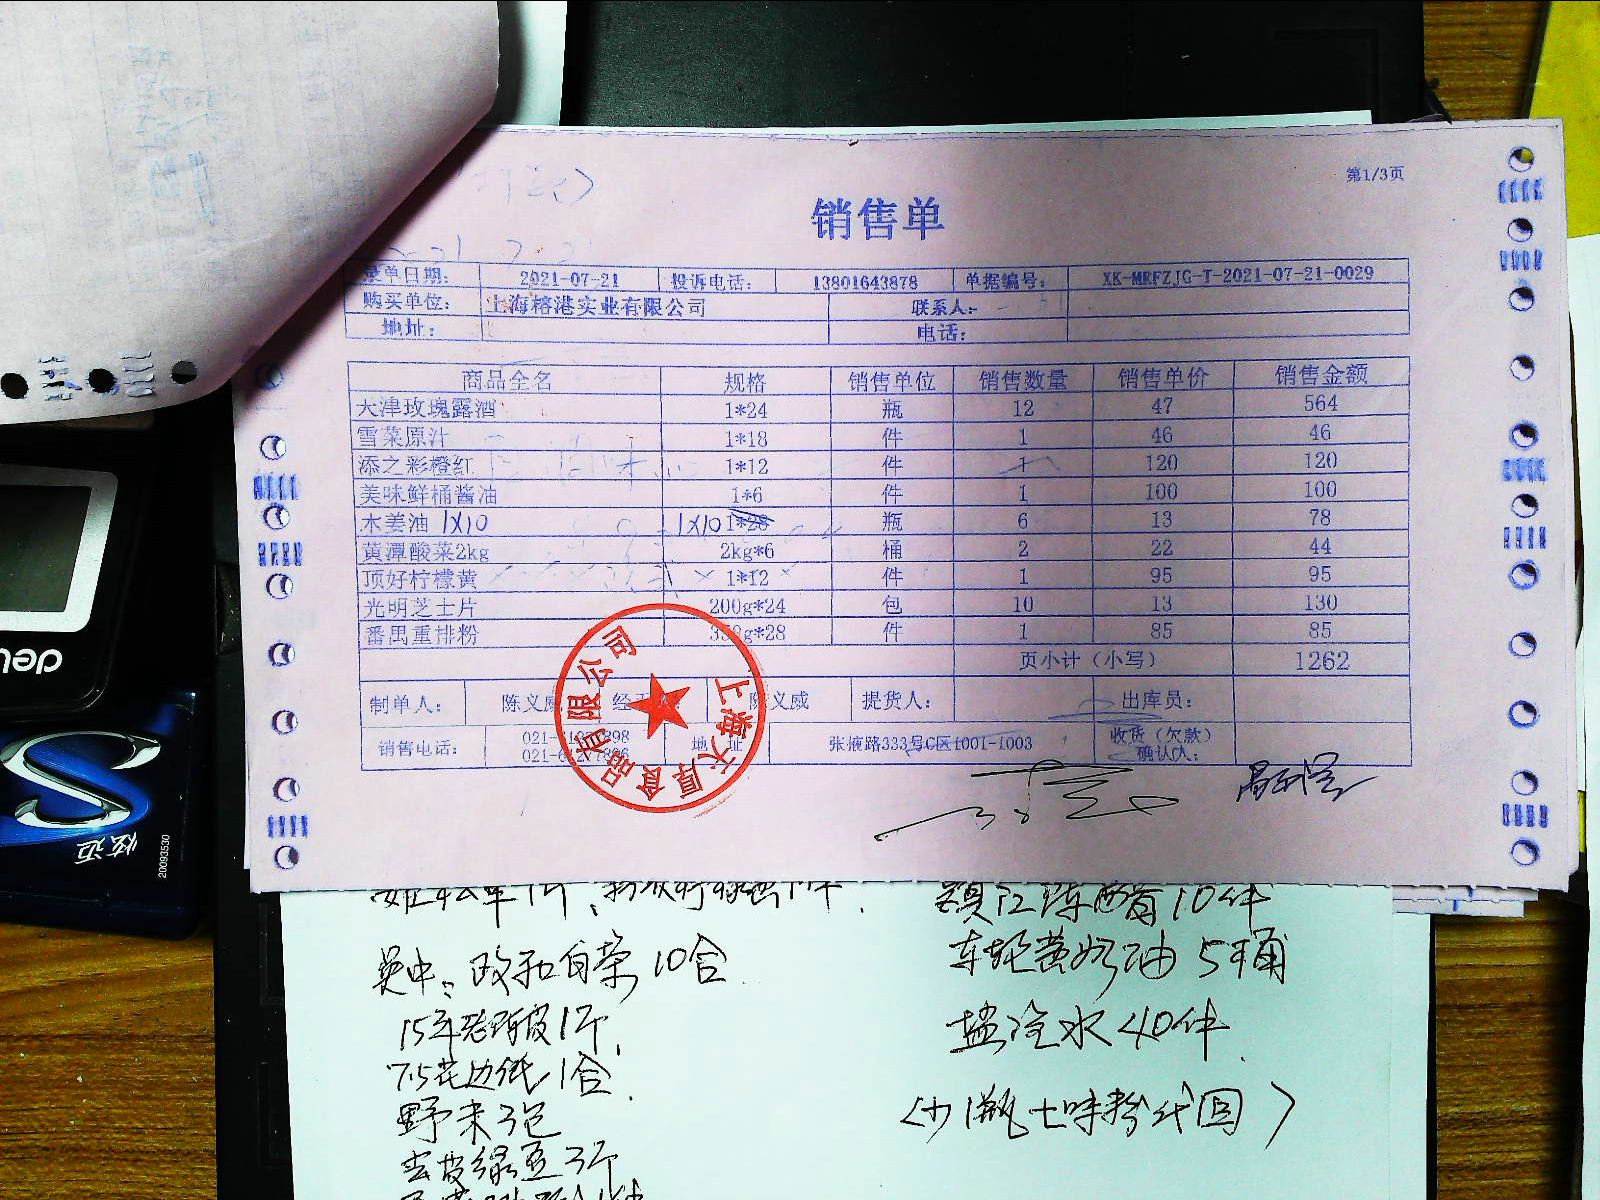 第1/3页
销售单
录单日期: 2021-07-21 投诉电话: 13801643878 单据编号: XK-MRFZJG-T-2021-07-21-0029
购买单位: 上海榕港实业有限公司 联系人:
地址: 电话:
商品全名 规格 销售单位 销售数量 销售单价 销售金额
天津玫瑰露酒 1*24 瓶 12 47 564
雪菜原汁 1*18 件 1 46 46
添之彩橙红 1*12 件 1 120 120
美味鲜桶酱油 1*6 件 1 100 100
木姜油 1X10 1X10 1*28 瓶 6 13 78
黄潭酸菜2kg 2kg*6 桶 2 22 44
顶好柠檬黄 1*12 件 1 95 95
光明芝士片 200g*24 包 10 13 130
番禺重排粉 g*28 件 1 85 85
页小计(小写) 1262
制单人: 陈义威 经 陈义威 提货人: 出库员:
销售电话: 021- 898 地址 张掖路333号C区1001-1003 收货(欠款)
021- 确认人:
上海大厚食品有限公司
镇江陈醋10件
吴中: 政和白茶10合
车轮黄奶油 5桶
15年老陈皮1斤
盐冷水40件
7.5花边纸1合
(少1瓶七味粉代回)
野米3包
去皮绿豆3斤
deli
炫迈
20093530